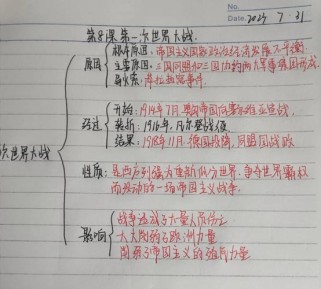 No.
Date 2023 7 31
第8课 第一次世界大战
根本原因:帝国主义国家政治经济发展不平衡
原因 主要原因:三国同盟和三国协约两大军事集团形成
导火索:萨拉热窝事件
开始:1914年7月 奥匈帝国向塞尔维亚宣战
经过 转折:1916年,凡尔登战役
结果:1918年11月 德国投降,同盟国战败
次世界大战
性质:是西方列强为重新瓜分世界、争夺世界霸权
而发动的一场帝国主义战争.
战争造成了大量人员伤亡
影响 大大削弱了欧洲力量
削弱了帝国主义的殖民力量